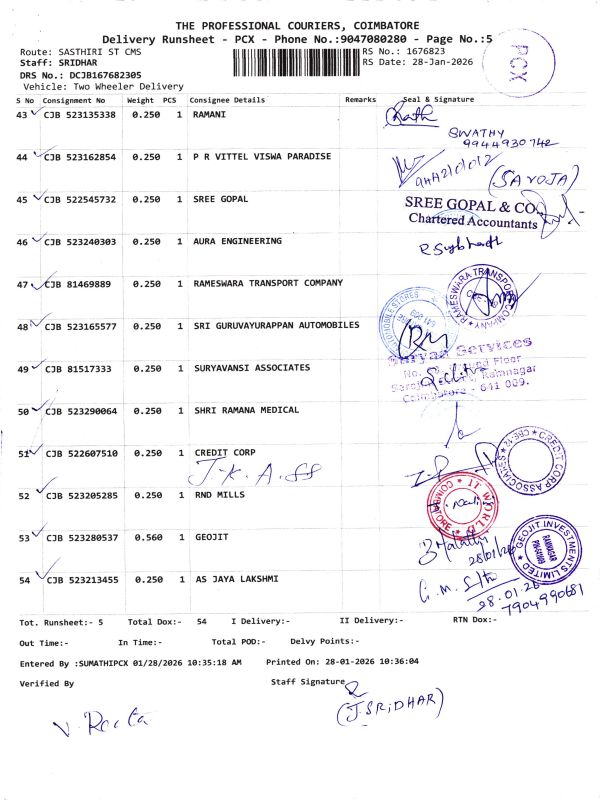 THE PROFESSIONAL COURIERS, COIMBATORE
Delivery Runsheet - PCX - Phone No.:9047080280 - Page No.:5
Route: SASTHIRI ST CMS
RS No.: 1676823
Staff: SRIDHAR
RS Date: 28-Jan-2026
PCX
DRS No.: DCJB167682305
Vehicle: Two Wheeler Delivery
S No Consignment No Weight PCS Consignee Details Remarks Seal & Signature
43 CJB 523135338 0.250 1 RAMANI
SWATHY
9944930742
44 CJB 523162854 0.250 1 P R VITTEL VISWA PARADISE
(SAROJA)
45 CJB 522545732 0.250 1 SREE GOPAL
SREE GOPAL & CO
Chartered Accountants
46 CJB 523240303 0.250 1 AURA ENGINEERING
47 CJB 81469889 0.250 1 RAMESWARA TRANSPORT COMPANY
RAMESWARA TRANSPORT COMPANY
48 CJB 523165577 0.250 1 SRI GURUVAYURAPPAN AUTOMOBILES
49 CJB 81517333 0.250 1 SURYAVANSI ASSOCIATES
Suryaa Services
Floor
Ramnagar
Coimbatore - 641 009.
50 CJB 523290064 0.250 1 SHRI RAMANA MEDICAL
51 CJB 522607510 0.250 1 CREDIT CORP
CREDIT CORP ASSOCIATES
CBE-12
J.K.A.SS
52 CJB 523205285 0.250 1 RND MILLS
IT WORLD
COIMBATORE
53 CJB 523280537 0.560 1 GEOJIT
28/01/26
GEOJIT INVESTMENTS LIMITED
RAMNAGAR
PIN-641009
54 CJB 523213455 0.250 1 AS JAYA LAKSHMI
28.01.26
7904990681
Tot. Runsheet:- 5 Total Dox:- 54 I Delivery:- II Delivery:- RTN Dox:-
Out Time:- In Time:- Total POD:- Delvy Points:-
Entered By :SUMATHIPCX 01/28/2026 10:35:18 AM Printed On: 28-01-2026 10:36:04
Verified By Staff Signature
V. Reeta
(J.SRiDHAR)